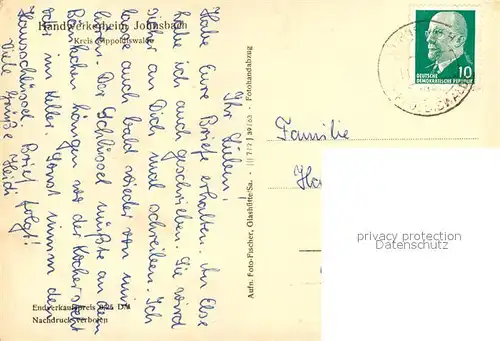 Handwerkerheim Johnsbach
Kreis Dippoldiswalde
Ihr Lieben!
Habe Eure Briefe erhalten. An Else
habe ich auch geschrieben. Sie wird
sicher an Dich mal schreiben. Ich
lasse auch bald wieder von mir
hören. Der Schlüssel müßte an dem
Bänkchen hängen wo der Kocher steht
oder im Keller. Sonst nimm den
Hausschlüssel Brief folgt!
Viele Grüße Heidi
Endverkaufspreis 0,25 DM
Nachdruck verboten
Aufn. Foto-Fischer, Glashütte/Sa. - III/7/2 J 39/63 - Fotohandabzug
DEUTSCHE
DEMOKRATISCHE REPUBLIK
10
Familie
privacy protection
Datenschutz